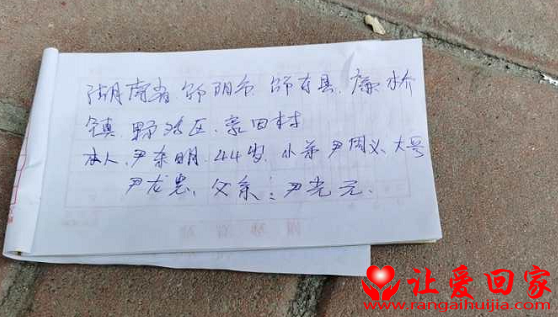 湖南省 邵阳市 邵东县. 廉桥
镇. 野鸡区. 田村
本人. 尹东明. 44岁. 小弟 尹周义. 大号
尹龙忠. 父亲: 尹光元.
让爱回家
www.rangaihuijia.com